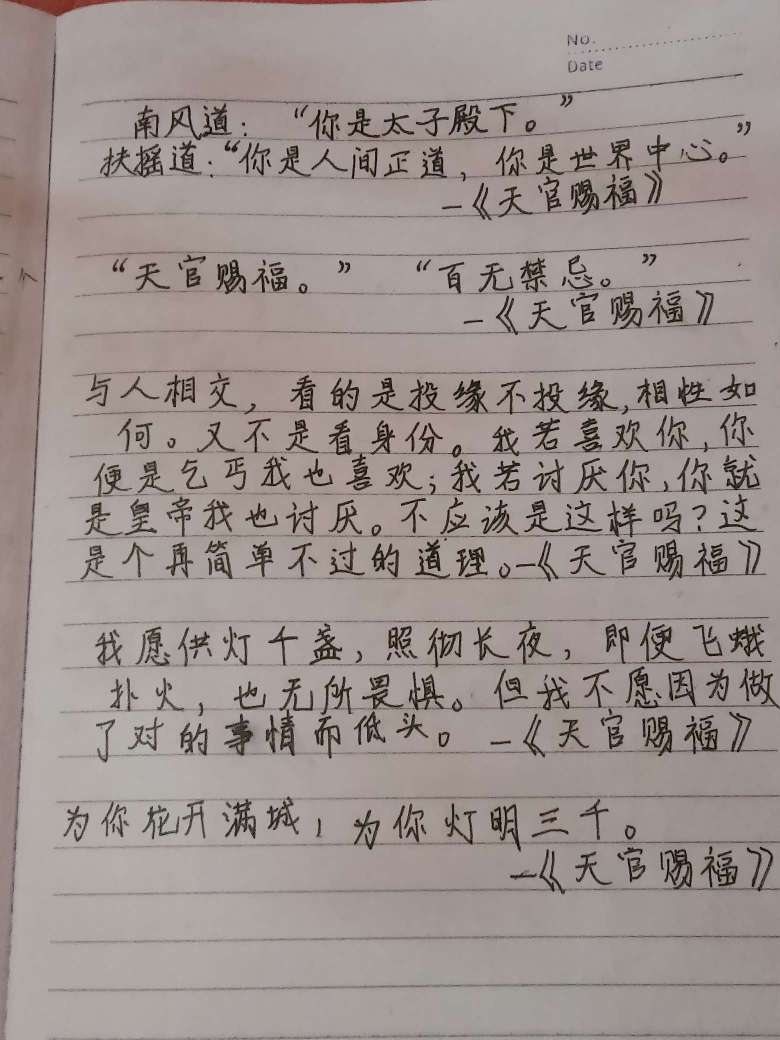 No.
Date
南风道：“你是太子殿下。”
扶摇道：“你是人间正道，你是世界中心。”
—《天官赐福》
“天官赐福。” “百无禁忌。”
—《天官赐福》
与人相交，看的是投缘不投缘，相性如
何。又不是看身份。我若喜欢你，你
便是乞丐我也喜欢；我若讨厌你，你就
是皇帝我也讨厌。不应该是这样吗？这
是个再简单不过的道理。—《天官赐福》
我愿供灯千盏，照彻长夜，即便飞蛾
扑火，也无所畏惧。但我不愿因为做
了对的事情而低头。—《天官赐福》
为你花开满城，为你灯明三千。
—《天官赐福》